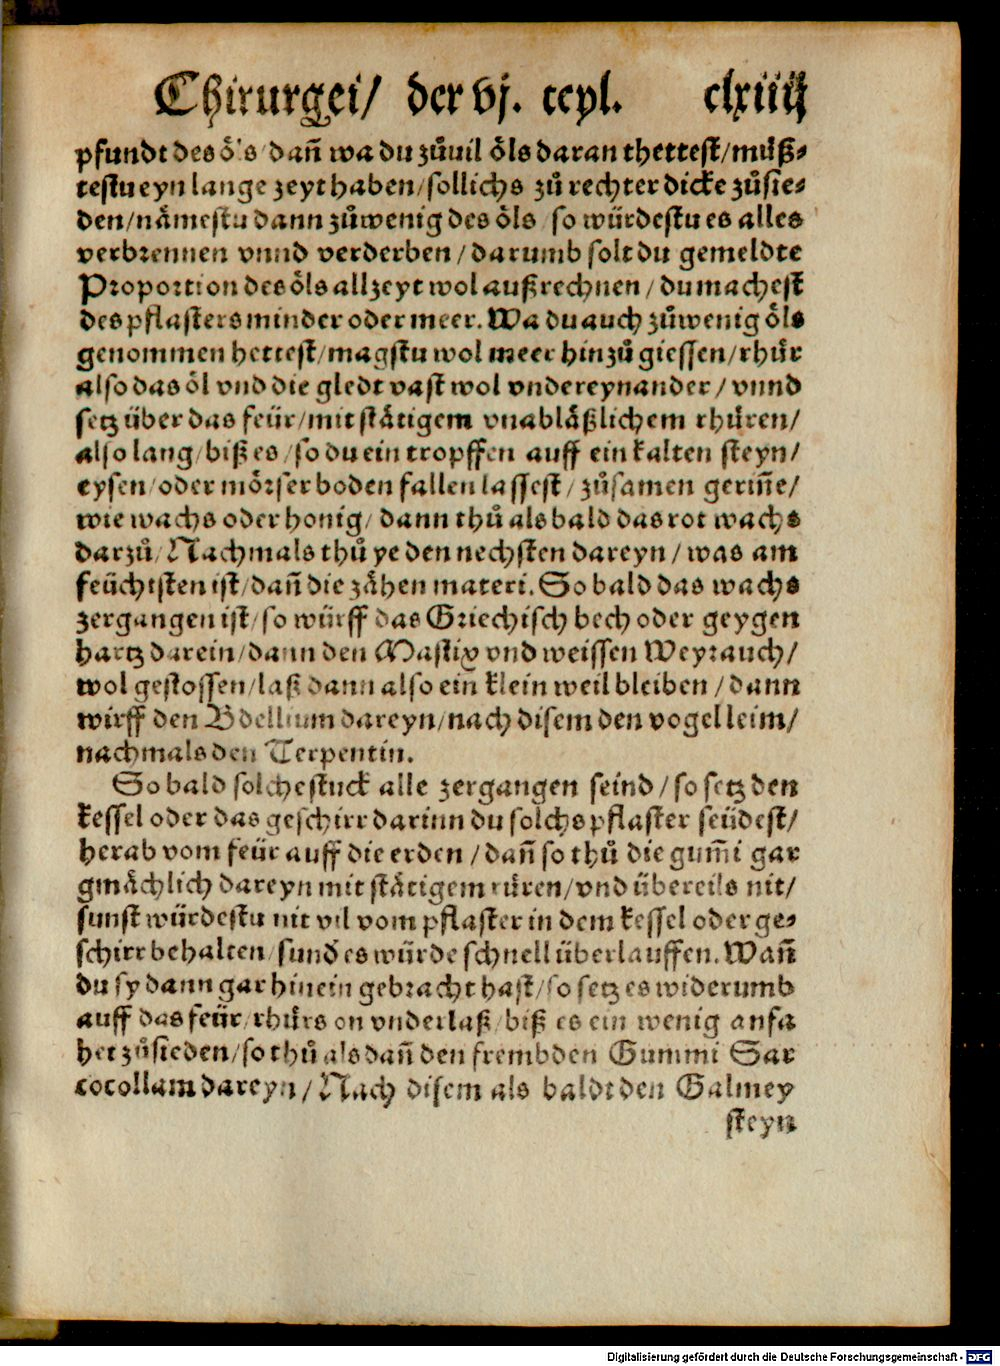 Chirurgei/ der vj. ccpl. clxiiij
pfundt des öls/dañ wa du zůuil öls daran thettest/můß⸗
testu eyn lange zeyt haben/sollichs zů rechter dicke zůsie⸗
den/nämestu dann zůwenig des öls/so würdestu es alles
verbrennen vnnd verderben/darumb solt du gemeldte
Proportion des öls allzeyt wol außrechnen/du machest
des pflasters minder oder meer. Wa du auch zůwenig öls
genommen hettest/magstu wol meer hinzů giessen/rhůr
also das öl vnd die gledt vast wol vndereynander/vnnd
setz über das feür/mit stätigem vnabläßlichem rhůren/
also lang/biß es/so du ein tropffen auff ein kalten steyn/
eysen/oder mörser boden fallen lassest/zůsamen geriñe/
wie wachs oder honig/dann thů als bald das rot wachs
darzů/Nachmals thů ye den nechsten dareyn/was am
feüchtsten ist/dañ die zähen materi. So bald das wachs
zergangen ist/so würff das Griechisch bech oder geygen
hartz darein/dann den Mastix vnd weissen Weyrauch/
wol gestossen/laß dann also ein klein weil bleiben/dann
wirff den Bdellium dareyn/nach disem den vogel leim/
nachmals den Terpentin.
So bald solche stuck alle zergangen seind/so setz den
kessel oder das geschirr darinn du solchs pflaster seüdest/
herab vom feür auff die erden/dañ so thů die gum̃i gar
gmächlich dareyn mit stätigem rüren/vnd übereils nit/
sunst würdestu nit vil vom pflaster in dem kessel oder ge⸗
schirr behalten/sund̕ es würde schnell überlauffen. Wañ
du sy dann gar hinein gebracht hast/so setz es widerumb
auff das feür/rhůrs on vnderlaß/biß es ein wenig anfa
het zůsieden/so thů als dañ den frembden Gummi Sar
cocollam dareyn/Nach disem als baldt den Galmey
steyn
Digitalisierung gefördert durch die Deutsche Forschungsgemeinschaft - DFG